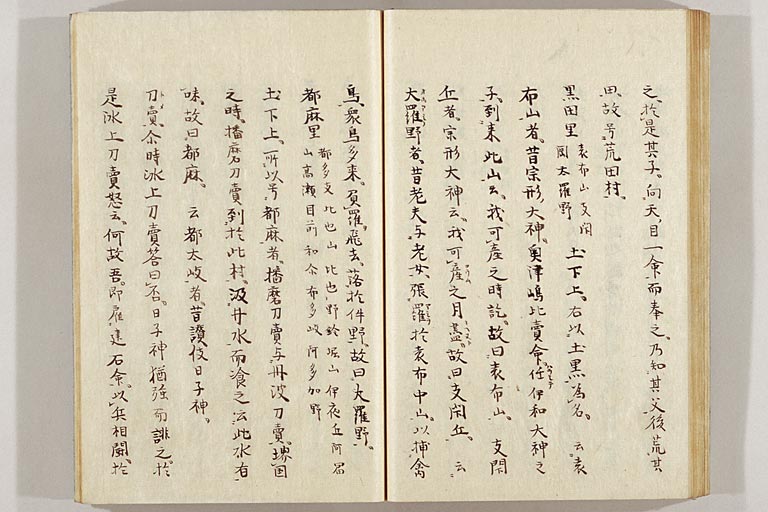 之於是其子向天目一命而奉之乃知其父後荒其
田故号荒田村
黒田里 袁布山 支閇
罡 大羅野 土下上右以土黒為名 云袁
布山者昔宗形大神奥津嶋比賣命任伊和大神之
子到来此山云我可産之時訖故曰袁布山 支閇
丘者宗形大神云我可産之月盡故曰支閇丘 云
大羅野者昔老夫与老女張羅於袁布中山以捕禽
鳥衆鳥多来負羅飛去落於件野故曰大羅野
都麻里 都多支 比也山 比也野 鈴堀山 伊夜丘 阿冨
山 高瀬 目前 和尒布多岐 阿多加野
土下上所以号都麻者播磨刀賣与丹波刀賣堺国
之時播磨刀賣到於此村汲井水而飡之云此水有
味故曰都麻 云都太岐者昔讚伎日子神
刀賣尒時氷上刀賣答曰否日子神猶強而誂之於
是氷上刀賣怒云何故吾即雇建石命以兵相闘於